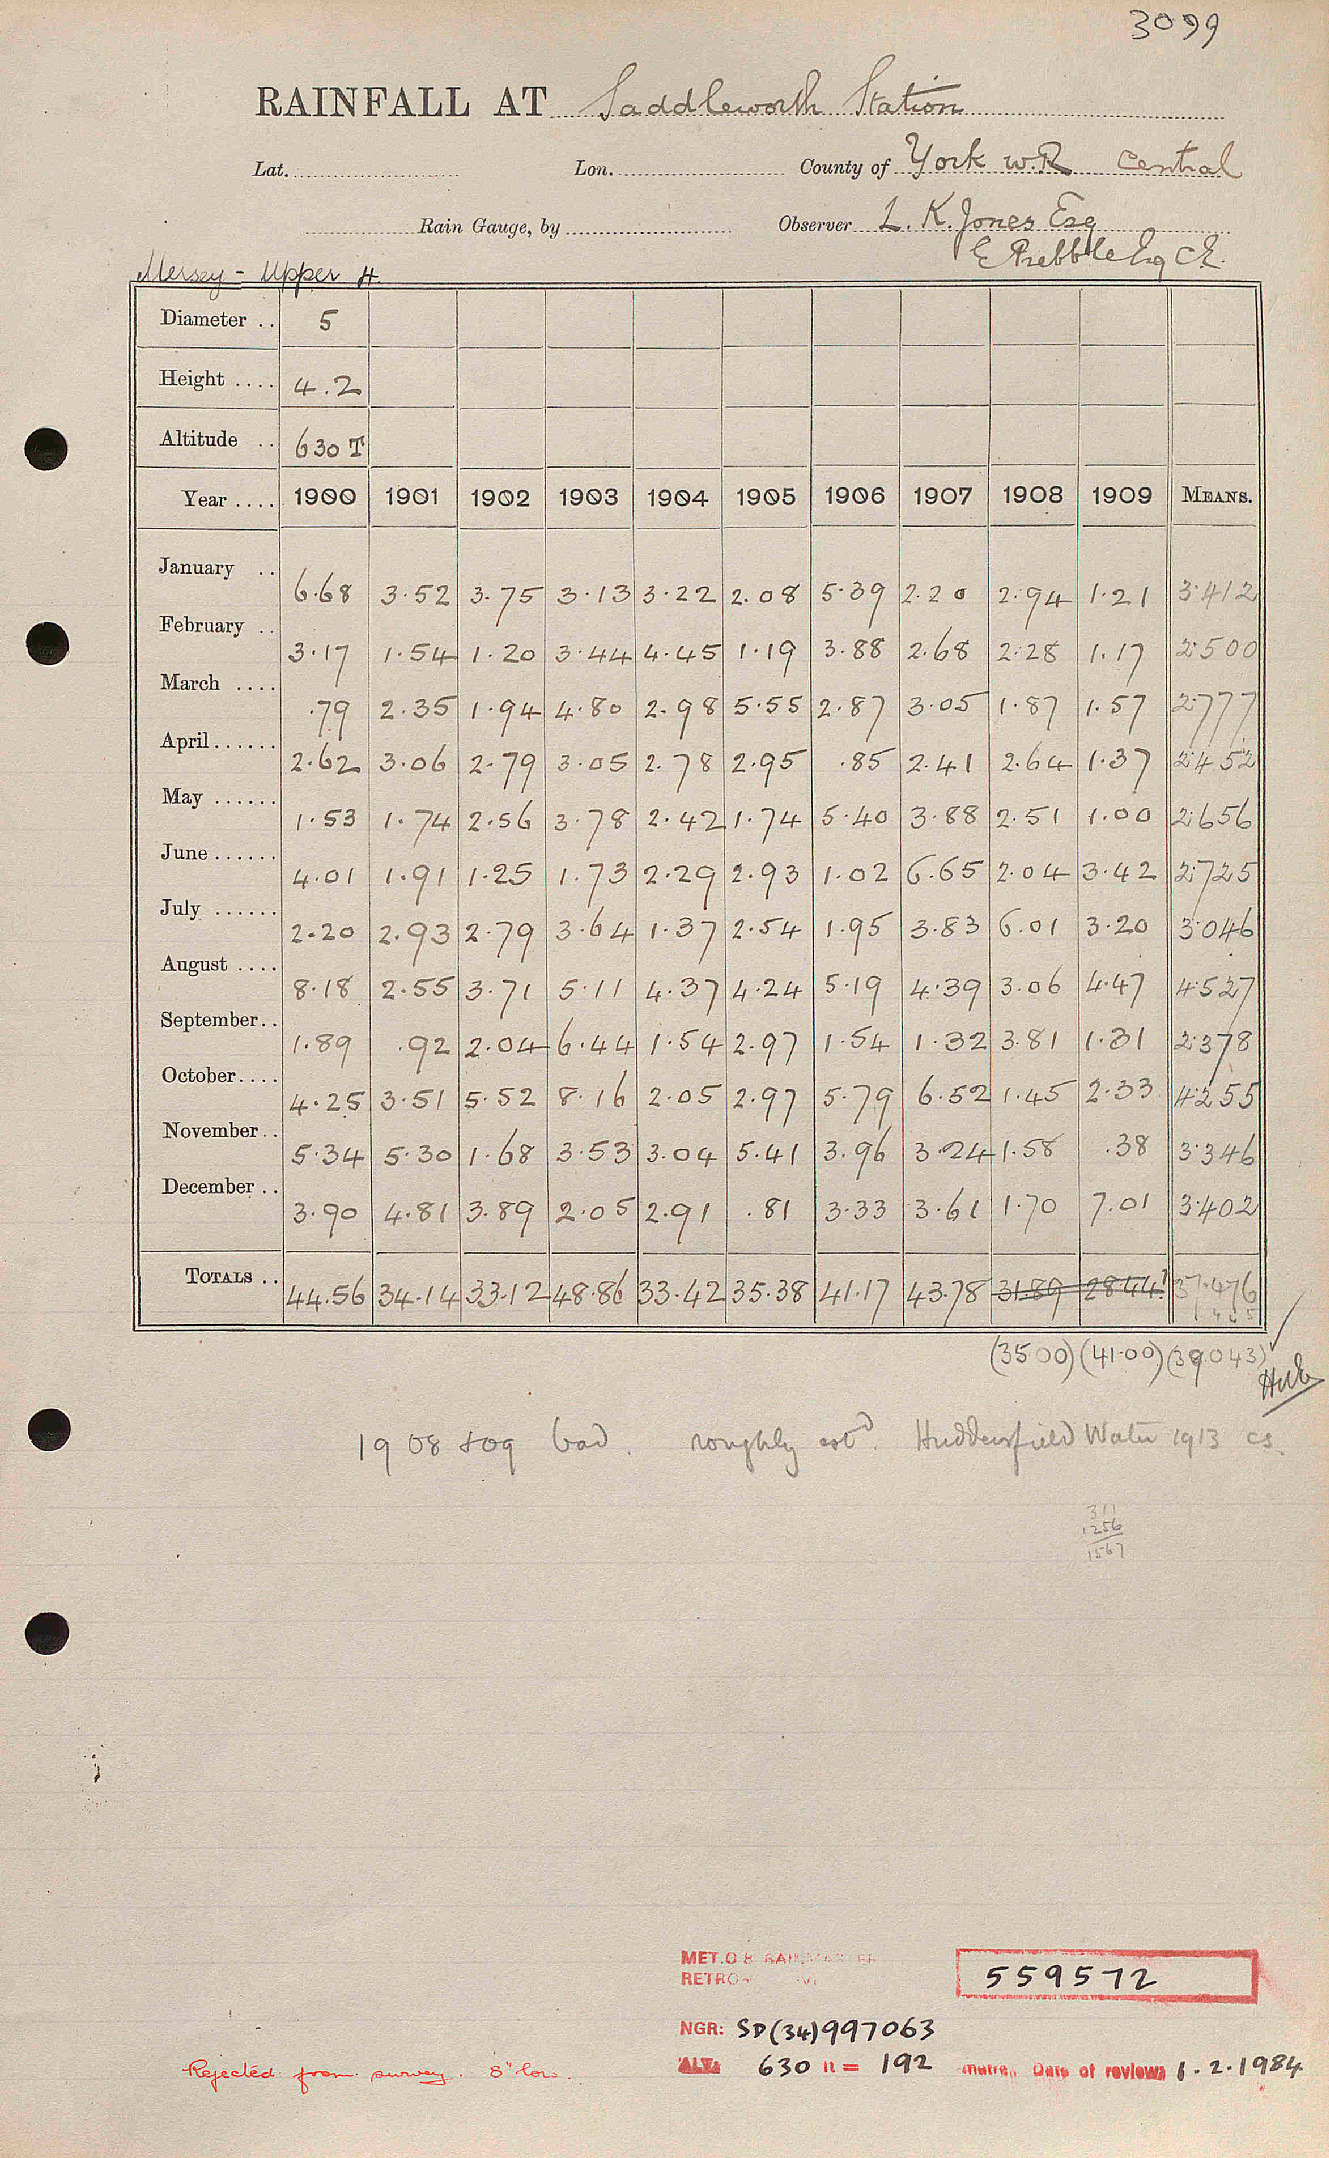 3099
RAINFALL AT Saddleworth Station
Lat. Lon. County of York W.R Central
Rain Gauge, by Observer L. K. Jones Esq
E Prebble Esq C.E.
Mersey - Upper H.
Diameter .. 5
Height .... 4.2
Altitude .. 630 T
Year .... 1900 1901 1902 1903 1904 1905 1906 1907 1908 1909 MEANS.
January .. 6.68 3.52 3.75 3.13 3.22 2.08 5.39 2.20 2.94 1.21 3.412
February .. 3.17 1.54 1.20 3.44 4.45 1.19 3.88 2.68 2.28 1.17 2.500
March .... .79 2.35 1.94 4.80 2.98 5.55 2.87 3.05 1.87 1.57 2.777
April...... 2.62 3.06 2.79 3.05 2.78 2.95 .85 2.41 2.64 1.37 2.452
May ...... 1.53 1.74 2.56 3.78 2.42 1.74 5.40 3.88 2.51 1.00 2.656
June...... 4.01 1.91 1.25 1.73 2.29 2.93 1.02 6.65 2.04 3.42 2.725
July ...... 2.20 2.93 2.79 3.64 1.37 2.54 1.95 3.83 6.01 3.20 3.046
August .... 8.18 2.55 3.71 5.11 4.37 4.24 5.19 4.39 3.06 4.47 4.527
September.. 1.89 .92 2.04 6.44 1.54 2.97 1.54 1.32 3.81 1.31 2.378
October.... 4.25 3.51 5.52 8.16 2.05 2.97 5.79 6.52 1.45 2.33 4.255
November.. 5.34 5.30 1.68 3.53 3.04 5.41 3.96 3.24 1.58 .38 3.346
December .. 3.90 4.81 3.89 2.05 2.91 .81 3.33 3.61 1.70 7.01 3.402
TOTALS .. 44.56 34.14 33.12 48.86 33.42 35.38 41.17 43.78 31.89 28.44 37.476
(35 00) (41.00) (39.043)
1908 & 09 bad. roughly estd. Huddersfield Water 1913 cs.
311
1256
1567
MET.O.8 RAINMASTER
RETRO
559572
NGR: SD(34)997063
ALT. 630 ft = 192 metre. Date of review: 1.2.1984
Rejected from survey. 8" low.